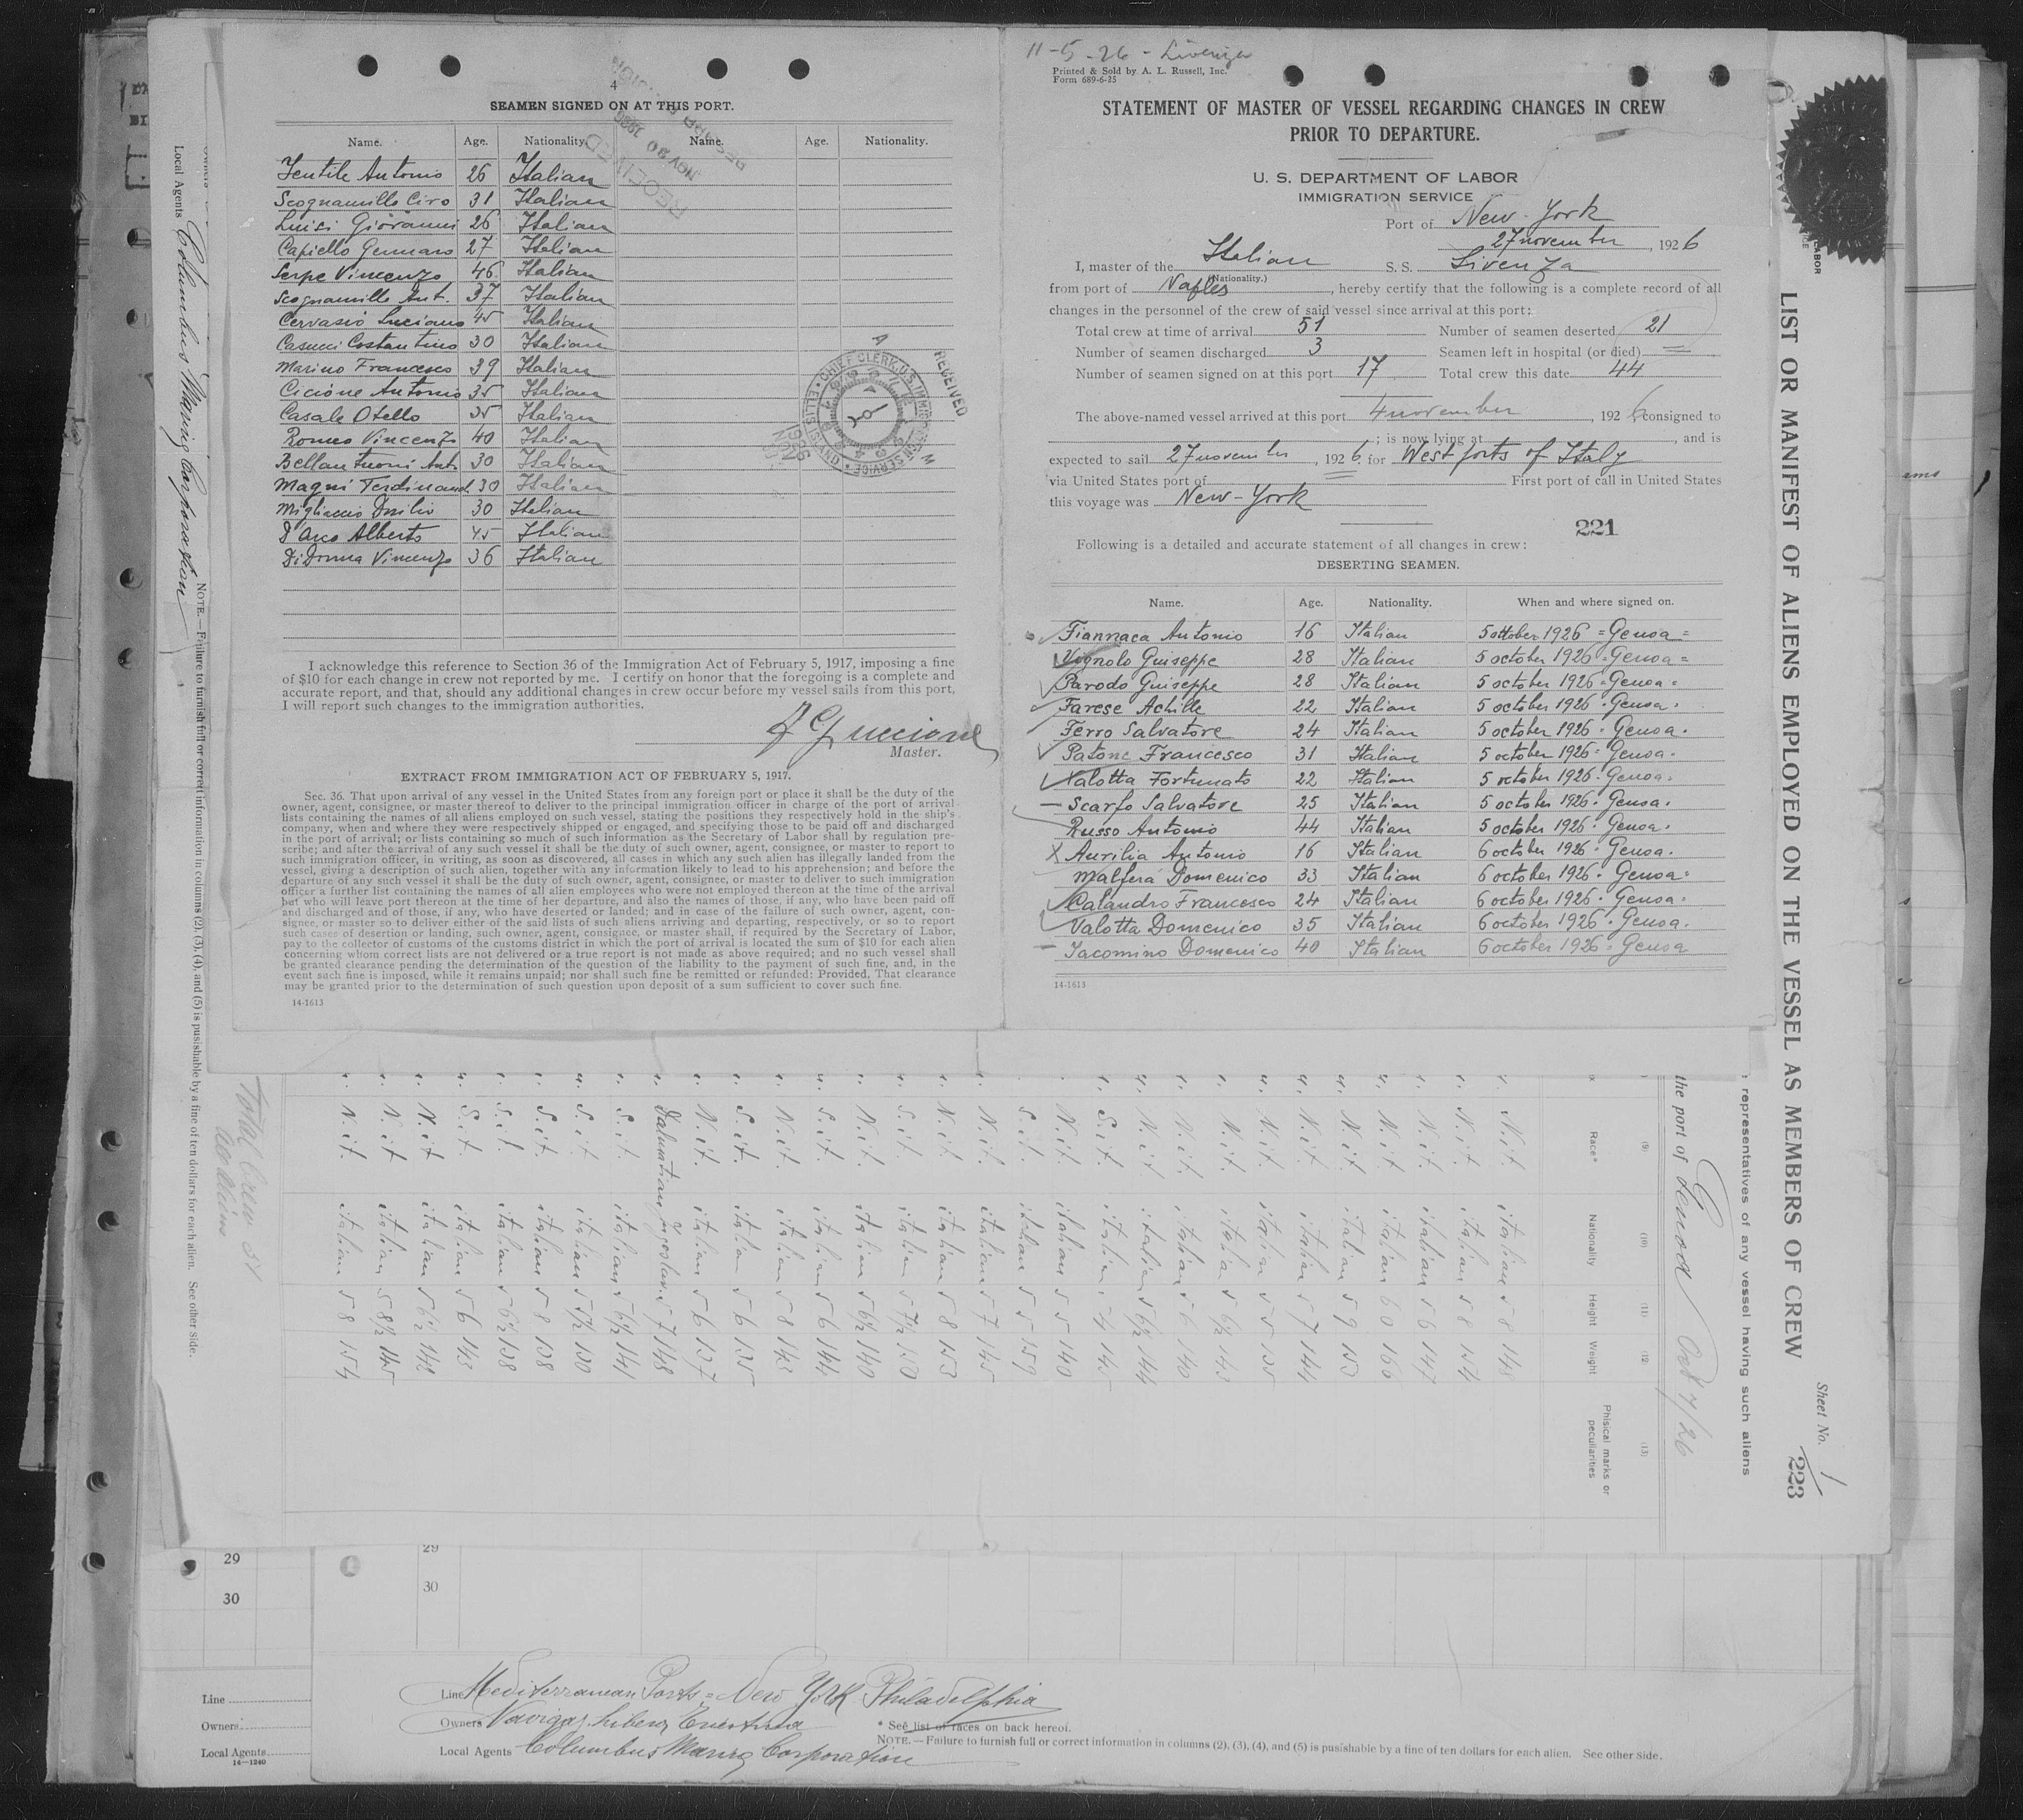 4
SEAMEN SIGNED ON AT THIS PORT.
Name. Age. Nationality. Name. Age. Nationality.
Gentile Antonio 26 Italian
Scognamillo Ciro 31 Italian
Luisi Giovanni 26 Italian
Capiello Gennaro 27 Italian
Serpe Vincenzo 46 Italian
Scognamillo Ant. 37 Italian
Cervasio Luciano 45 Italian
Casucci Costantino 30 Italian
Marino Francesco 39 Italian
Cicione Antonio 35 Italian
Casale Otello 35 Italian
Romeo Vincenzo 40 Italian
Bellantuoni Ant. 30 Italian
Magri Ferdinand. 30 Italian
Migliaccio Duilio 30 Italian
D'Arco Alberto 45 Italian
Di Donna Vincenzo 36 Italian
I acknowledge this reference to Section 36 of the Immigration Act of February 5, 1917, imposing a fine
of $10 for each change in crew not reported by me. I certify on honor that the foregoing is a complete and
accurate report, and that, should any additional changes in crew occur before my vessel sails from this port,
I will report such changes to the immigration authorities.
Master.
EXTRACT FROM IMMIGRATION ACT OF FEBRUARY 5, 1917.
Sec. 36. That upon arrival of any vessel in the United States from any foreign port or place it shall be the duty of the
owner, agent, consignee, or master thereof to deliver to the principal immigration officer in charge of the port of arrival
lists containing the names of all aliens employed on such vessel, stating the positions they respectively hold in the ship's
company, when and where they were respectively shipped or engaged, and specifying those to be paid off and discharged
in the port of arrival; or lists containing so much of such information as the Secretary of Labor shall by regulation pre-
scribe; and after the arrival of any such vessel it shall be the duty of such owner, agent, consignee, or master to report to
such immigration officer, in writing, as soon as discovered, all cases in which any such alien has illegally landed from the
vessel, giving a description of such alien, together with any information likely to lead to his apprehension; and before the
departure of any such vessel it shall be the duty of such owner, agent, consignee, or master to deliver to such immigration
officer a further list containing the names of all alien employees who were not employed thereon at the time of the arrival
but who will leave port thereon at the time of her departure, and also the names of those, if any, who have been paid off
and discharged and of those, if any, who have deserted or landed; and in case of the failure of such owner, agent, con-
signee, or master so to deliver either of the said lists of such aliens arriving and departing, respectively, or so to report
such cases of desertion or landing, such owner, agent, consignee, or master shall, if required by the Secretary of Labor,
pay to the collector of customs of the customs district in which the port of arrival is located the sum of $10 for each alien
concerning whom correct lists are not delivered or a true report is not made as above required; and no such vessel shall
be granted clearance pending the determination of the question of the liability to the payment of such fine, and, in the
event such fine is imposed, while it remains unpaid; nor shall such fine be remitted or refunded: Provided, That clearance
may be granted prior to the determination of such question upon deposit of a sum sufficient to cover such fine.
14-1613
11-5-26 - Livenza
Printed & Sold by A. L. Russell, Inc.
Form 689-6-25
STATEMENT OF MASTER OF VESSEL REGARDING CHANGES IN CREW
PRIOR TO DEPARTURE.
U. S. DEPARTMENT OF LABOR
IMMIGRATION SERVICE
Port of New-York
27 november, 1926
I, master of the Italian S. S. Livenza
(Nationality.)
from port of Naples, hereby certify that the following is a complete record of all
changes in the personnel of the crew of said vessel since arrival at this port:
Total crew at time of arrival 51 Number of seamen deserted 21
Number of seamen discharged 3 Seamen left in hospital (or died) =
Number of seamen signed on at this port 17 Total crew this date 44
The above-named vessel arrived at this port 4 november, 1926, consigned to
; is now lying at , and is
expected to sail 27 november, 1926, for West ports of Italy
via United States port of = First port of call in United States
this voyage was New-York
221
Following is a detailed and accurate statement of all changes in crew:
DESERTING SEAMEN.
Name. Age. Nationality. When and where signed on.
Fiannaca Antonio 16 Italian 5 october 1926 = Genoa =
Vognolo Guiseppe 28 Italian 5 october 1926 = Genoa =
Parodo Guiseppe 28 Italian 5 october 1926 = Genoa =
Farese Achille 22 Italian 5 october 1926 · Genoa ·
Ferro Salvatore 24 Italian 5 october 1926 · Genoa ·
Patone Francesco 31 Italian 5 october 1926 = Genoa ·
Valotta Fortunato 22 Italian 5 october 1926 · Genoa ·
Scarfo Salvatore 25 Italian 5 october 1926 · Genoa ·
Russo Antonio 44 Italian 5 october 1926 · Genoa ·
X Aurilia Antonio 16 Italian 6 october 1926 · Genoa ·
Malfera Domenico 33 Italian 6 october 1926 · Genoa ·
Calandro Francesco 24 Italian 6 october 1926 · Genoa ·
Valotta Domenico 35 Italian 6 october 1926 · Genoa ·
Iacomino Domenico 40 Italian 6 october 1926 · Genoa
14-1613
LIST OR MANIFEST OF ALIENS EMPLOYED ON THE VESSEL AS MEMBERS OF CREW
Sheet No. 1
223
representatives of any vessel having such aliens
the port of Genoa Oct 7/26
(9) (10) (11) (12) (13)
Race* Nationality Height Weight Phisical marks or peculiarities
N. it. italian 5 8 148
N. it. italian 5 8 154
N. it. italian 5 6 147
N. it. italian 6 0 166
N. it. italian 5 9 150
N. it. italian 5 7 144
N. it. italian 5 5 135
N. it. italian 5 6½ 143
N. it. italian 5 6 140
N. it. italian 5 6½ 144
S. it. italian 5 4 145
N. it. italian 5 5 140
S. it. italian 5 5 159
N. it. italian 5 7 145
N. it. italian 5 8 153
S. it. italian 5 7½ 150
N. it. italian 5 6½ 140
S. it. italian 5 6 144
N. it. italian 5 8 143
S. it. italian 5 6 135
N. it. italian 5 6 137
Dalmatian Jugoslav. 5 7 148
S. it. italian 5 6½ 141
S. it. italian 5 5½ 130
S. it. italian 5 8 138
S. it. italian 5 6½ 138
S. it. italian 5 6 143
N. it italian 5 6½ 148
N. it italian 5 8½ 145
N. it. italian 5 8 154
Total Crew 51
All aliens
NOTE.—Failure to furnish full or correct information in columns (2), (3), (4), and (5) is pusishable by a fine of ten dollars for each alien. See other side.
Local Agents Columbus Marine Corporation
RECEIVED
NOV 30 1926
CHIEF CLERK, U.S. IMMIGRATION SERVICE
ELLIS ISLAND
RECEIVED
29
30
Line
Owners
Local Agents
14-1240
29
30
Line Mediterranean Ports = New York Philadelphia
Owners Navigaz. Libera Triestina
* See list of races on back hereof.
Local Agents Columbus Marine Corporation
NOTE.—Failure to furnish full or correct information in columns (2), (3), (4), and (5) is pusishable by a fine of ten dollars for each alien. See other side.